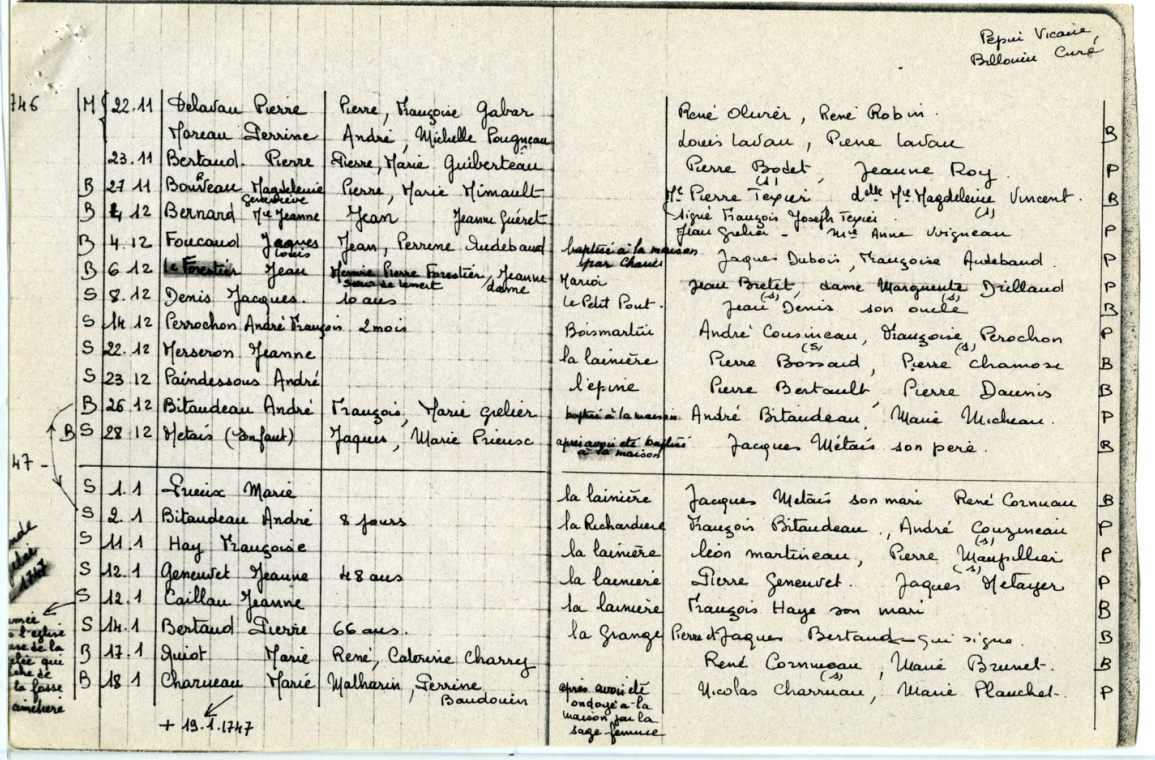 Pépin Vicaire,
Billouin Curé
746 M 22.11 Delavau Pierre Pierre, Françoise Gabar René Olivier, René Robin
Moreau Perrine André, Michelle Pougneau Louis Lavau, Pierre Lavau B
23.11 Bertaud Pierre Pierre, Marie Guiberteau Pierre Bodet, Jeanne Roy P
B 27 11 Magdeleine Pierre, Marie Mimault Me Pierre Texier (s) delle Mie Magdeleine Vincent (s) B
Geneviève
B 4 12 Bernard Mie Jeanne Jean Jeanne Guéret signé François Joseph Texier
Jean Grelier - Mie Anne Voigneau P
B 4.12 Foucaud Jaques Jean, Perrine Audebaud baptisé à la maison Jaques Dubois, Françoise Audebaud P
Louis par Chauvi
B 6 12 le Forestier Jean Pierre Forestier, Jeanne dame Jean Bretet, dame Marguerite Drillaud P
S 8.12 Denis Jacques. 10 ans le Petit Pont. Jean (s) Denis son oncle (s) B
S 14.12 Perrochon André François 2 mois Boismartin André Cousineau, Françoise Perochon P
S 22.12 Merseron Jeanne la lainière Pierre (s) Bossard, Pierre (s) Chamose B
S 23.12 Paindessous André l'epine Pierre Bertault, Pierre Daunis B
B 26.12 Bitaudeau André François, Marie Grelier baptisé à la maison André Bitaudeau, Marie Micheau. P
B S 28.12 Metais (Enfant) Jaques, Marie Prieusc après avoir été baptisé Jacques Métais son père. B
à la maison
47 -
S 1.1 Prieix Marie la lainière Jacques Metais son mari René Cornuau B
S 2.1 Bitaudeau André 8 jours la Richardiere François Bitaudeau, André Couzineau P
S 11.1 Hay Françoise la lainière léon martineau, Pierre (s) Maupillier P
S 12.1 Geneuvet Jeanne 48 ans la lainière Pierre Geneuvet. Jaques (s) Metayer P
S 12.1 Caillau Jeanne la lainière François Haye son mari B
S 14.1 Bertaud Pierre 66 ans. la Grange Pierre et Jaques Bertaud qui signe B
B 17.1 Guiot Marie René, Caterine Charrey René Cornuau, Marie Brunet. B
B 18 1 Charueau Marie Mathurin, Perrine après avoir été Nicolas Charruau (s), Marie Planchet. P
Baudouin ondoyé à la
+ 19.1.1747 maison par la
sage femme
1747
l'église
de la
qui
de
la fosse